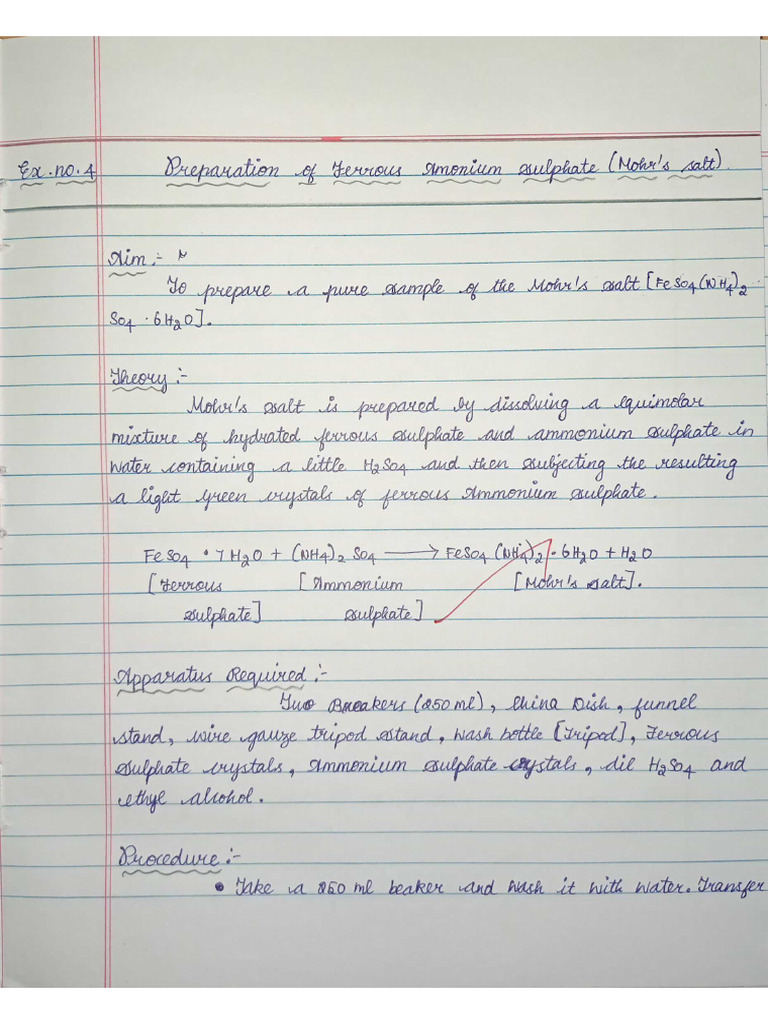 Ex.no.4 Preparation of Ferrous Amonium Sulphate (Mohr's salt).
Aim:-
To prepare a pure sample of the Mohr's salt [FeSO4(NH4)2.
SO4.6H2O].
Theory:-
Mohr's salt is prepared by dissolving a equimolar
mixture of hydrated ferrous sulphate and ammonium sulphate in
water containing a little H2SO4 and then subjecting the resulting
a light green crystals of ferrous Ammonium sulphate.
FeSO4 • 7H2O + (NH4)2 SO4 ⟶ FeSO4 (NH4)2 • 6H2O + H2O
[Ferrous [Ammonium [Mohr's salt].
sulphate] sulphate]
Apparatus Required:-
Two Breakers (250ml), China Dish, funnel
stand, wire gauze tripod stand, wash bottle [Tripod], Ferrous
sulphate crystals, Ammonium sulphate crystals, dil H2SO4 and
ethyl alcohol.
Procedure:-
• Take a 250 ml beaker and wash it with water. Transfer